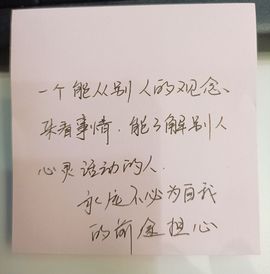 一个能从别人的观念、
来看事情，能了解别人
心灵活动的人，
永应不必为自我
的前途担心